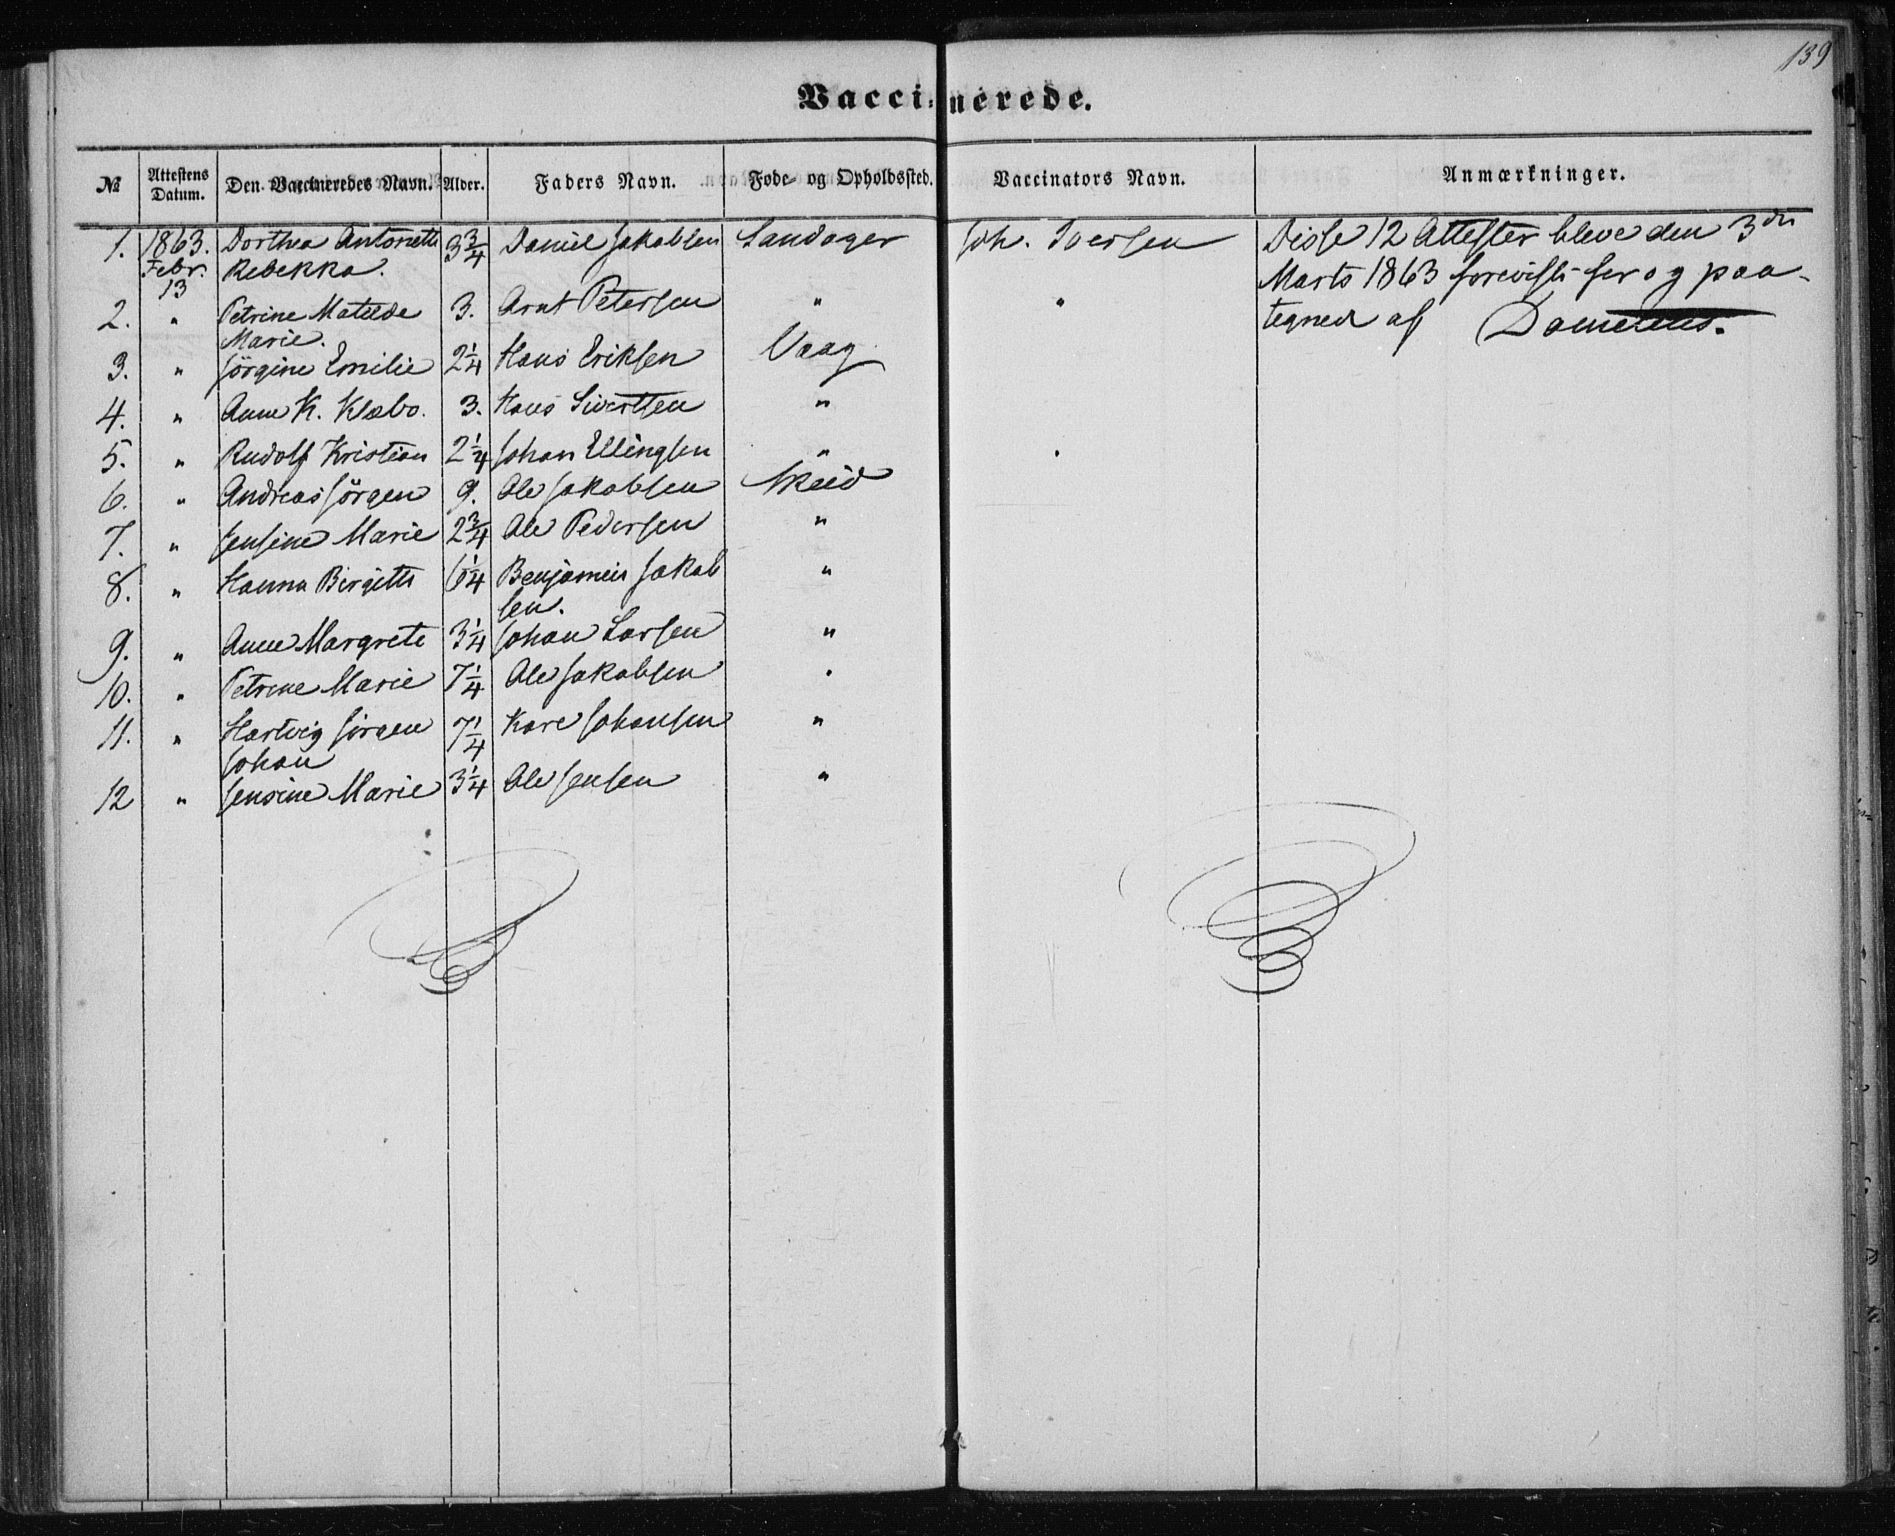 139
Vaccinerede.
№ | Attestens Datum. | Den Vaccineredes Navn. | Alder. | Faders Navn. | Føde- og Opholdssted. | Vaccinators Navn. | Anmærkninger.
1. | 1863. Febr. 13 | Dorthea Antonette Rebekka. | 3 3/4 | Daniel Jakobsen | Sandager | Joh. Iversen | Disse 12 Attester bleve den 3die
Marts 1863 foreviste og paa-
tegned af
2. | " | Petrine Matilde Marie. | 3. | Arnt Petersen | " | "
3. | " | Jörgine Emilie | 2 1/4 | Hans Eriksen | Vaag
4. | " | Anne K. Klæbo. | 3. | Hans Sivertsen | "
5. | " | Rudolf Kristian | 2 1/4 | Johan Ellingsen | " | "
6. | " | Andreas Jörgen | 9. | Ole Jakobsen | Skeid
7. | " | Jensine Marie | 2 3/4 | Ole Pedersen | "
8. | " | Hanna Birgitte | 6 1/4 | Benjamin Jakobsen. | "
9. | " | Anne Margrete | 3 1/4 | Johan Larsen | "
10. | " | Petrine Marie | 7 1/4 | Ole Jakobsen | "
11. | " | Hartvig Jörgen Johan | 7 1/4 | Kare Johansen | "
12 | " | Jensine Marie | 3 1/4 | Ole Jensen | "